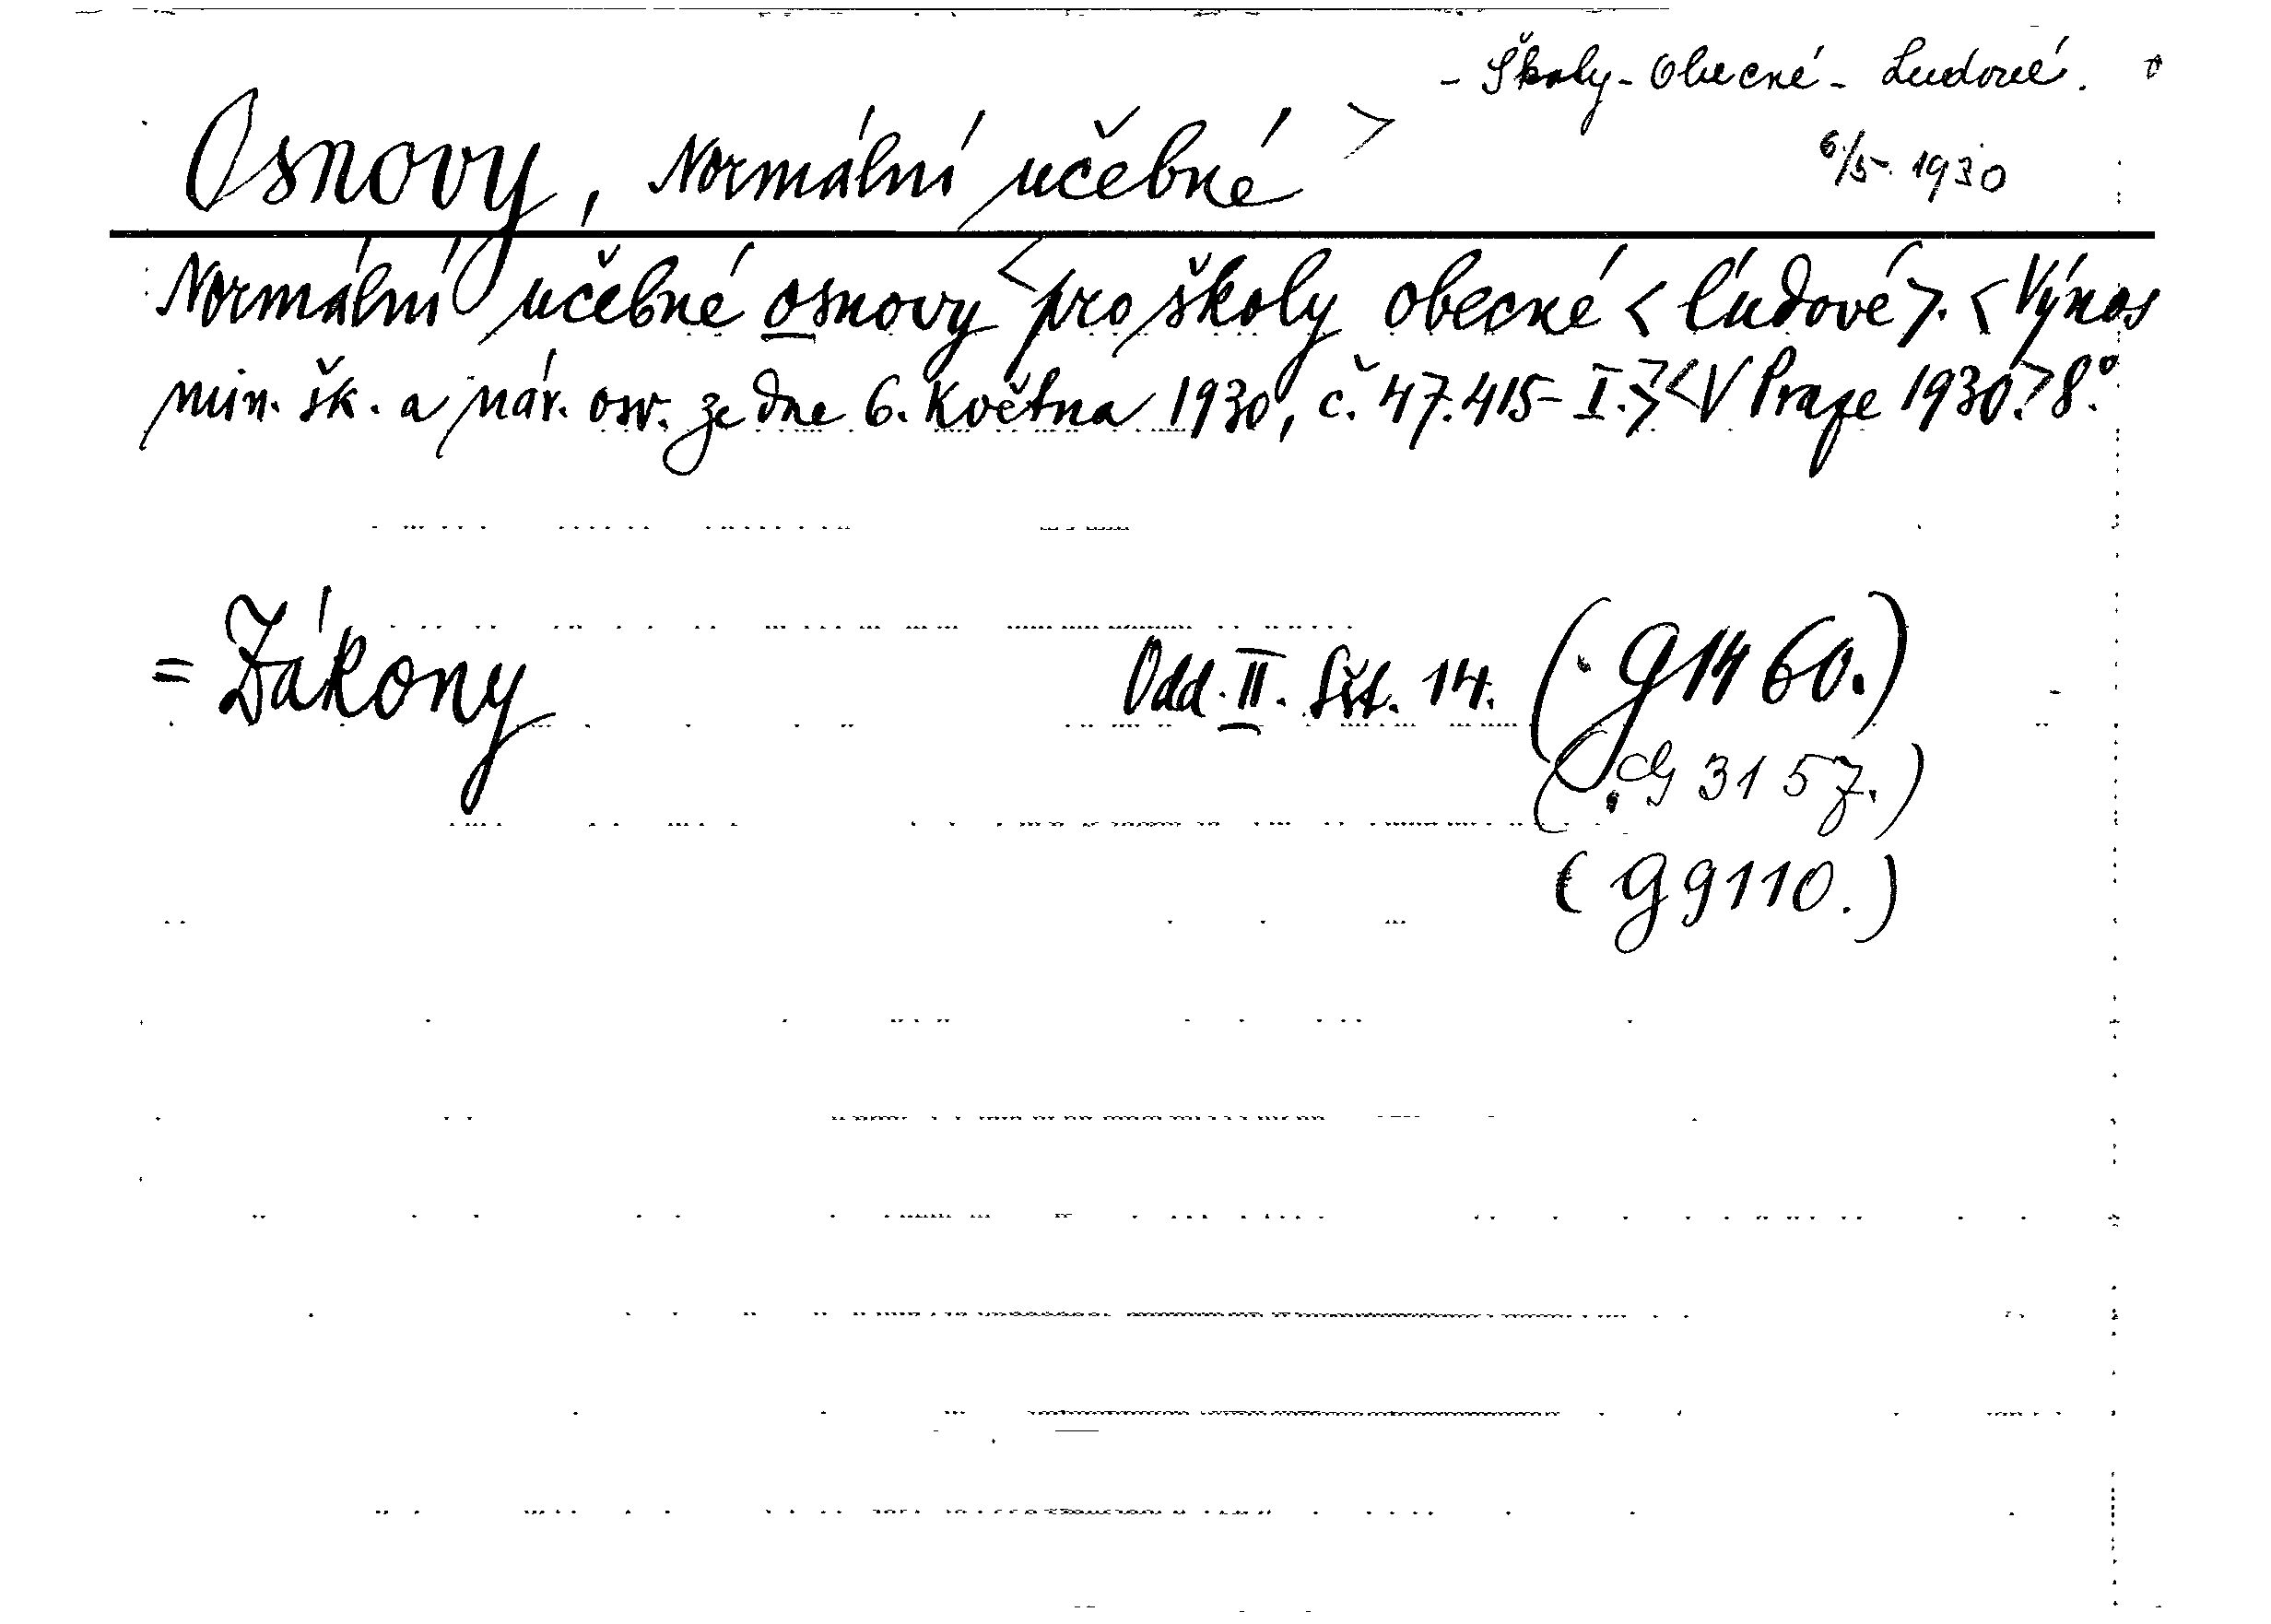 - Školy - Obecné - Ludové.
Osnovy, Normální učebné >
6./5. 1930
Normální učebné osnovy < pro školy obecné < ľudové >. < Výnos
min. šk. a nár. osv. ze dne 6. května 1930, č. 47.415-I. > < V Praze 1930. > 8.°
= Zákony Odd. II. Sšt. 14. (G 1460.)
(G 3157.)
(G 9110.)